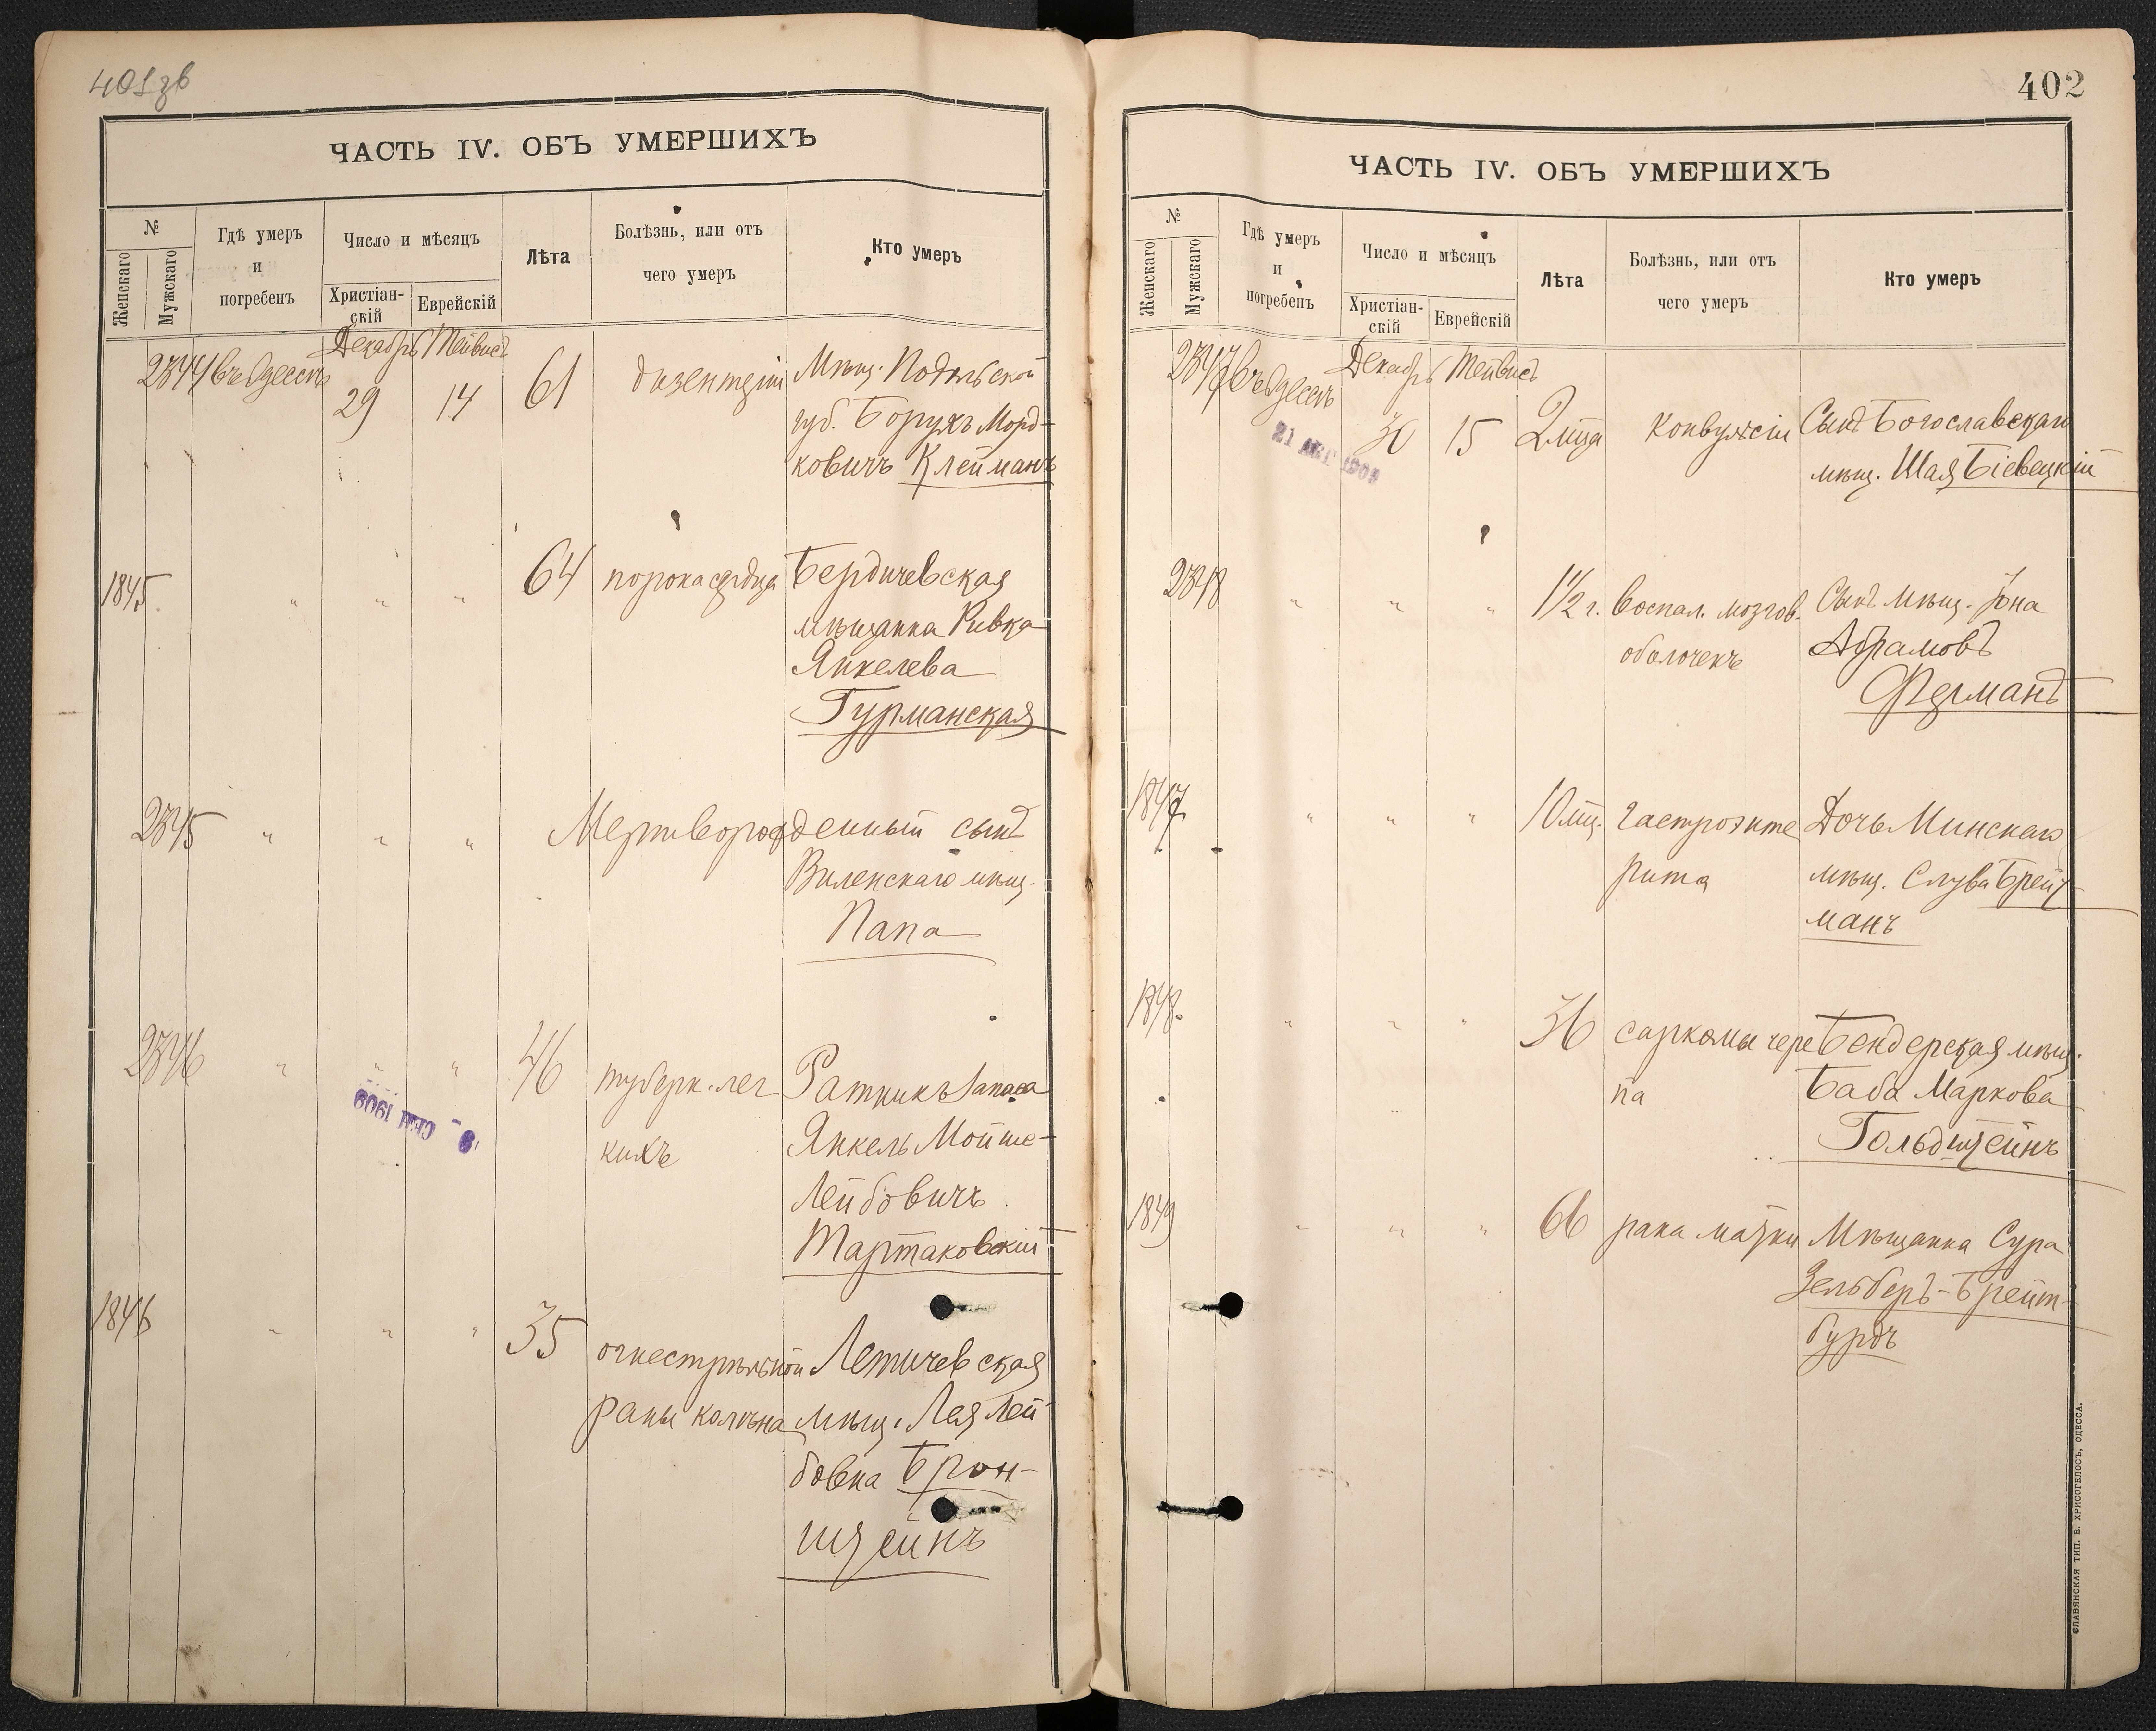 401зв
ЧАСТЬ IV. ОБЪ УМЕРШИХЪ
№
Женскаго
Мужскаго
Гдѣ умеръ
и
погребенъ
Число и мѣсяцъ
Христіан-
скій
Еврейскій
Лѣта
Болѣзнь, или отъ
чего умеръ
Кто умеръ
Декабрь Тейвисъ
2844 въ Одессѣ 29 14 61 дизентеріи Мѣщ. Подольской
губ. Борухъ Морд-
ковичъ Клейманъ
1845 " " " 64 порока сердца Бердичевская
мѣщанка Ривка
Янкелева
Гурманская
2845 " " " Мертворожденный сынъ
Виленскаго мѣщ.
Папа
2846 " " " 46 туберк. лег Ратникъ Запаса
кихъ Янкель Мойше-
Лейбовичъ
Тартаковскій
9 - СЕН 1909
1846 " " " 35 огнестрѣльной Летичевская
раны колѣна мѣщ. Лея Лей
бовна Брон-
штейнъ
402
ЧАСТЬ IV. ОБЪ УМЕРШИХЪ
№
Женскаго
Мужскаго
Гдѣ умеръ
и
погребенъ
Число и мѣсяцъ
Христіан-
скій
Еврейскій
Лѣта
Болѣзнь, или отъ
чего умеръ
Кто умеръ
Декабрь Тейвисъ
2847 въ Одессѣ 30 15 2 мца конвульсіи Сынъ Богославскаго
мѣщ. Шая Біевецкій
21 АВГ 1909
2848 " " " 1 1/2 г. воспал. мозгов. Сынъ мѣщ. Іона
оболочекъ Абрамовъ
Ферманъ
1847 " " " 10 мц. гастроэнте Дочь Минскаго
рита мѣщ. Слува Брейт-
манъ
1848. " " " 36 саркомы чере Бендерская мѣщ.
па Баба Маркова
Гольдштейнъ
1849 " " " 66 рака матки Мѣщанка Сура
Зельберъ-Брейт-
бурдъ
СЛАВЯНСКАЯ ТИП. Е. ХРИСОГЕЛОСЪ, ОДЕССА.